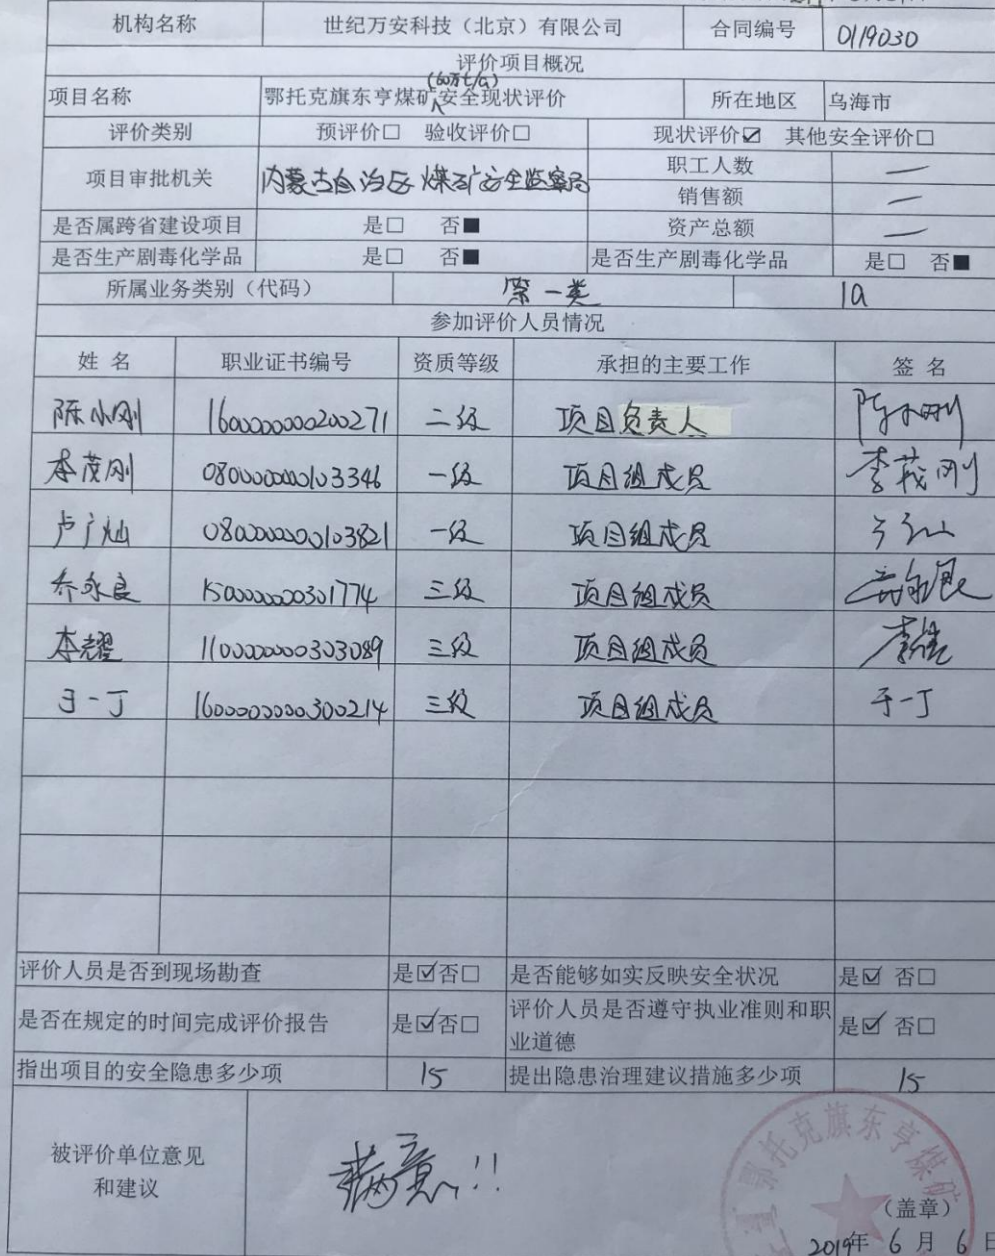 机构名称 世纪万安科技（北京）有限公司 合同编号 0119030
评价项目概况
(60万t/a)
项目名称 鄂托克旗东亨煤矿安全现状评价 所在地区 乌海市
评价类别 预评价□ 验收评价□ 现状评价☑ 其他安全评价□
项目审批机关 内蒙古自治区煤矿安全监察局 职工人数 —
销售额 —
是否属跨省建设项目 是□ 否■ 资产总额 —
是否生产剧毒化学品 是□ 否■ 是否生产剧毒化学品 是□ 否■
所属业务类别（代码） 第一类 1a
参加评价人员情况
姓 名 职业证书编号 资质等级 承担的主要工作 签 名
陈小刚 1600000000200271 二级 项目负责人 陈小刚
李茂刚 0800000000103346 一级 项目组成员 李茂刚
卢广灿 0800000000103821 一级 项目组成员
乔永良 1500000000301774 三级 项目组成员 乔永良
李耀 1100000000303089 三级 项目组成员 李耀
于一丁 1600000000300214 三级 项目组成员 于一丁
评价人员是否到现场勘查 是☑否□ 是否能够如实反映安全状况 是☑ 否□
是否在规定的时间完成评价报告 是☑否□ 评价人员是否遵守执业准则和职
业道德 是☑ 否□
指出项目的安全隐患多少项 15 提出隐患治理建议措施多少项 15
被评价单位意见
和建议
满意!!
鄂托克旗东亨煤矿
（盖章）
2019年 6 月 6 日